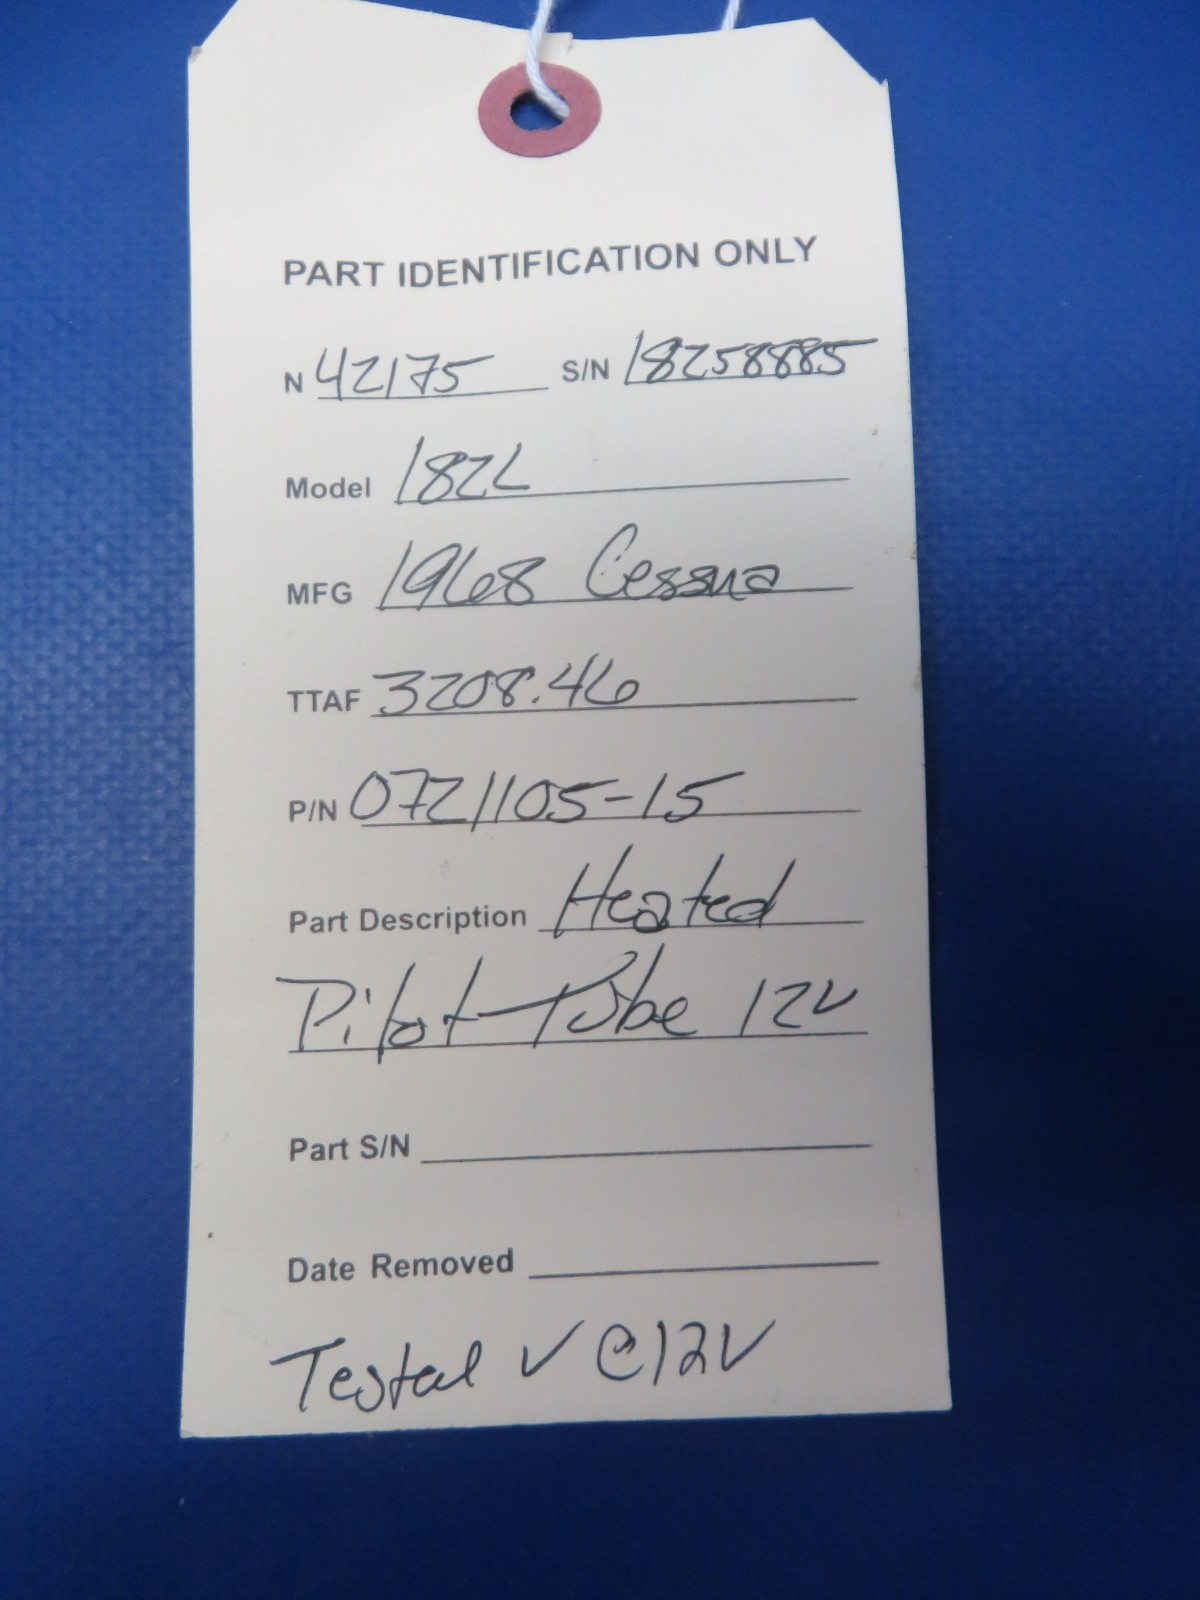 PART IDENTIFICATION ONLY
N 42175 S/N 18258885
Model 182L
MFG 1968 Cessna
TTAF 3208.46
P/N 0721105-15
Part Description Heated
Pitot Tube 12V
Part S/N
Date Removed
Tested ✓ @12V